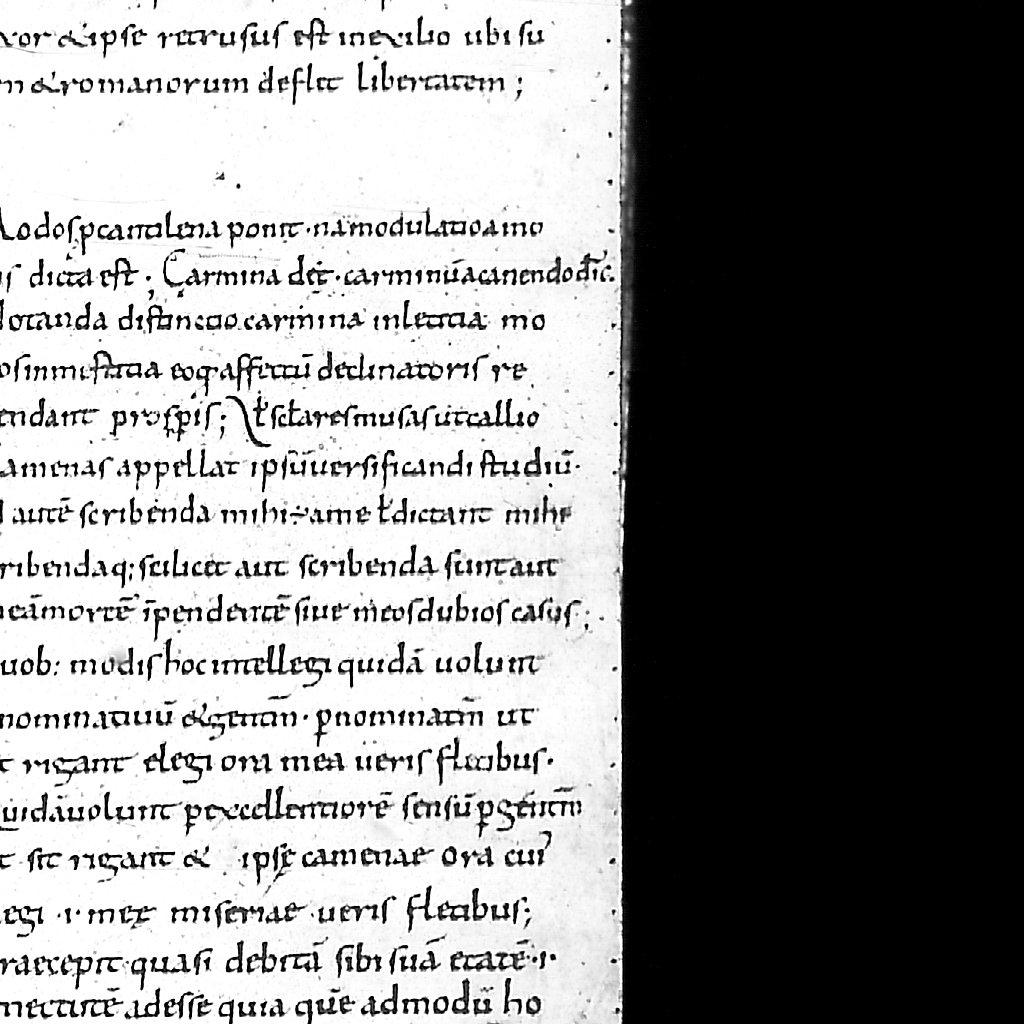 xor & ipse retrusus est inexilio ubi su
m & romanorum deflet libertatem ;
Modos p cantilena ponit · nā modulatio amo
is dicta est · Carmina dēt · carminū a canendo dic̄.
Notanda distinctio carmina inletitia mo
os inmestitia eoq affectū declinatoris re
endant prosp̱is ; ł sctares musas ut callio
amenas appellat ipsū uersificandi studiū ·
autē scribenda mihi ÷ a me ł dictant mihi
ribenda q; scilicet aut scribenda sunt aut
eā mortē īpendentē siue meos dubios casus ;
uob: modis hoc intellegi quidā uolunt
nominatiuū & gentm̄ · p nominatm̄ ut
t rigant elegi ora mea ueris fletibus ·
uidā uolunt p excellentiorē sensū p gentm̄
t sit rigant & ipsę camenae ora cui
egi · i · meę miseriae ueris fletibus ;
raecepit quasi debitā sibi suā etatē · i ·
nectutē adesse quia quē admodū ho